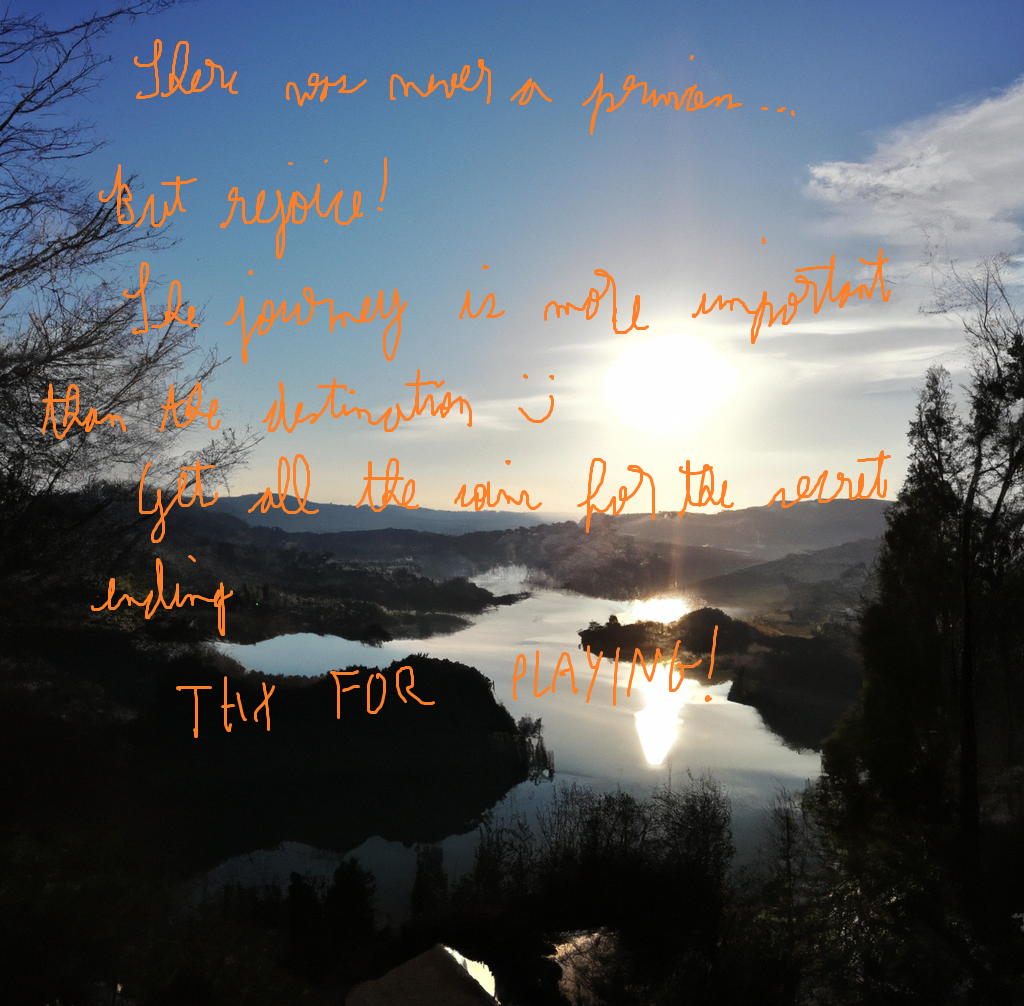 There was never a princess...
But rejoice!
The journey is more important
than the destination :)
Get all the coins for the secret
ending
THX FOR PLAYING!